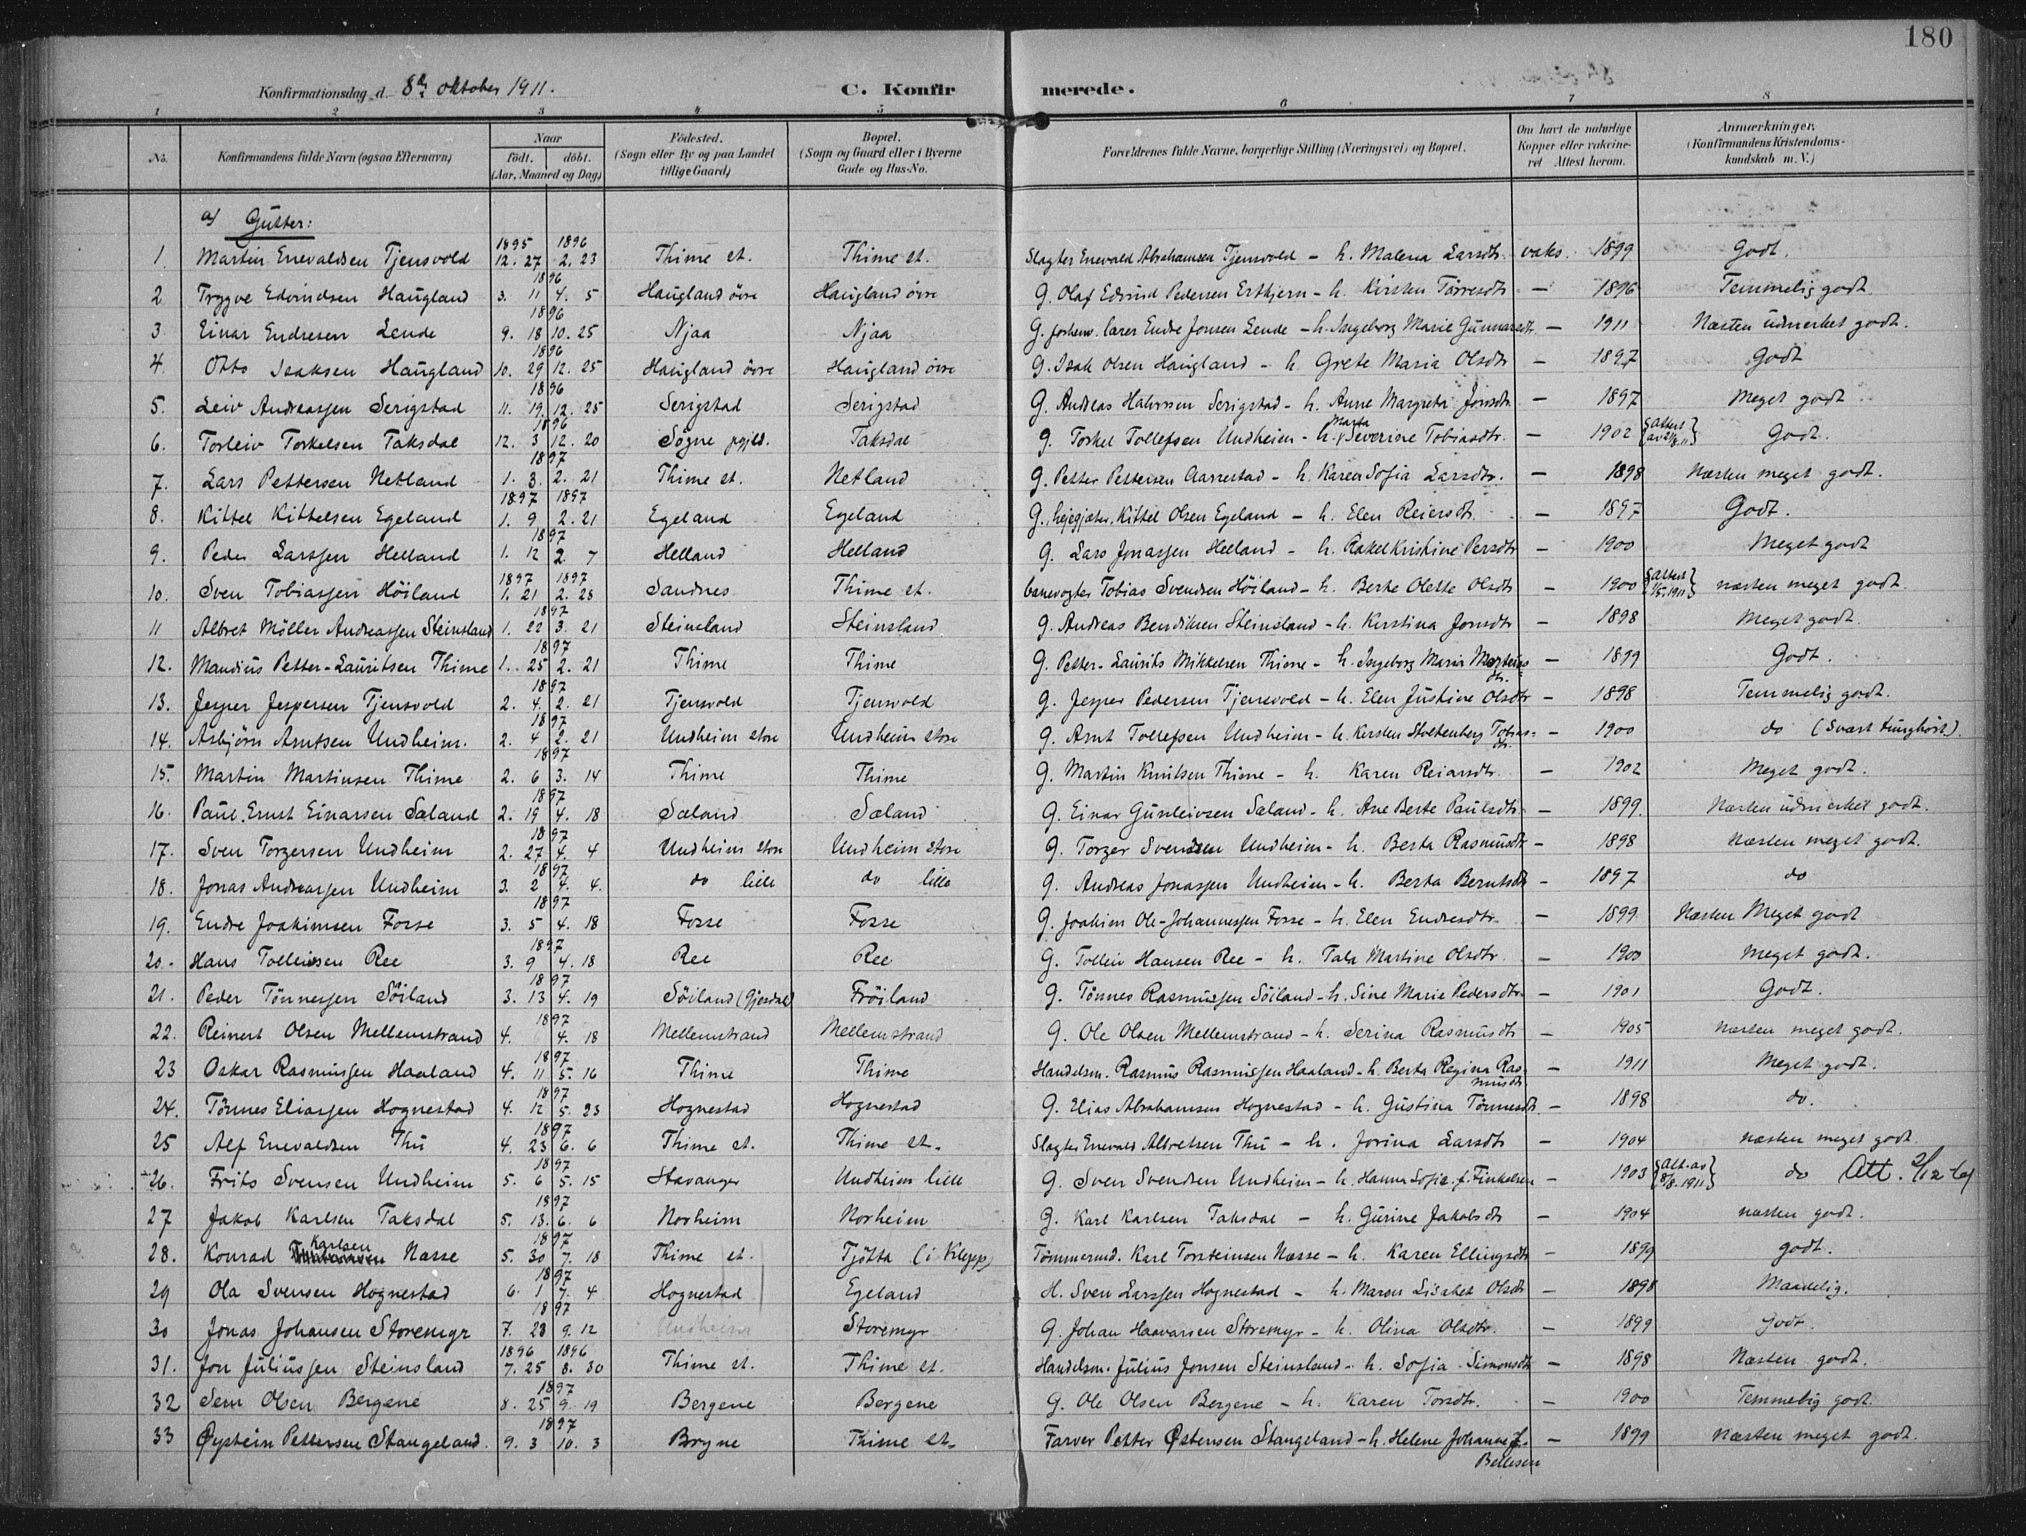 180
Konfirmationsdag d. 8de oktober 1911. C. Konfirmerede.
1 2 3 4 5 6 7 8
No. Konfirmandens fulde Navn (ogsaa Efternavn) Naar födt. döbt. (Aar, Maaned og Dag) Födested. (Sogn eller By og paa Landet tillige Gaard) Bopæl. (Sogn og Gaard eller i Byerne Gade og Hus-No. Forældrenes fulde Navne, borgerlige Stilling (Næringsvei) og Bopæl. Om havt de naturlige Kopper eller vakcineret Attest herom. Anmærkninger. (Konfirmandens Kristendomskundskab m. V.)
a) Gutter:
1 Martin Enevaldsen Tjensvold 1895 12. 27 1896 2. 23 Thime st. Thime st. Slagter Enevald Abrahamsen Tjensvold - h. Malena Larsdtr. vaks. 1899 Godt.
2 Trygve Edvindsen Haugland 1896 3. 11 4. 5 Haugland övre Haugland övre G. Olaf Edvind Pedersen - h. Kirsten Tørresdtr - 1896 Temmelig godt.
3. Einar Endresen Lende 1896 9. 18 10. 25 Njaa Njaa G. forhenv. lærer Endre Jonsen Lende - h. Ingeborg Marie Gunnarsdtr - 1911 Næsten udmerket godt.
4. Otto Isaksen Haugland 1896 10. 29 12. 25 Haugland övre Haugland övre G. Isak Olsen Haugland - h. Grete Maria Olsdtr - 1897 Godt
5. Leiv Andreassen Serigstad 1896 11. 19. 12. 25 Serigstad Serigstad G. Andreas Halvorsen Serigstad - h. Anne Margreta Jonsdtr - 1897 Meget godt
6. Torleiv Torkelsen Taksdal 1896 12. 3 12. 20 Sogne pgjld. Taksdal G. Torkel Tollefsen Undheim - h. Marta Severine Tobiasdtr. - 1902 {Attest av 21/8.11} Godt.
7. Lars Pettersen Netland 1897 1. 3. 2. 21 Thime st. Netland G. Petter Pettersen Aarrestad - h. Karen Sofia Larsdtr. - 1898 Næsten meget godt.
8. Kittel Kittelsen Egeland 1897 1. 9 1897 2. 21 Egeland Egeland G., hejegjæter, Kittel Olsen Egeland - h. Elen Reiersdtr. - 1897 Godt.
9. Peder Larssen Helland 1897 1. 12 2. 7 Helland Helland G. Lars Jonassen Helland - h. Rakel Kristine Persdtr - 1900 Meget godt
10. Sven Tobiassen Höiland 1897 1. 21 1897 2. 28 Sandnes Thime st. banevogter Tobias Svendsen Höiland - h. Berte Olette Olsdtr - 1900 {Attest 1/5.1911} næsten meget godt.
11 Albret Möller Andreassen Steinsland 1897 1. 22 3. 21 Steinsland Steinsland G. Andreas Bendiksen Steinsland - h. Kirstina Jonsdtr - 1898 Meget godt.
12. Mandius Petter-Lauritsen Thime 1897 1. 25 2. 21 Thime Thime G. Petter-Laurits Mikkelsen Thime - h. Ingeborg Maria Martinsdtr. - 1899 Godt.
13. Jesper Jespersen Tjensvold 1897 2. 4. 2. 21 Tjensvold Tjensvold G. Jesper Pedersen Tjensvold - h. Elen Justine Olsdtr - 1898 Temmelig godt.
14. Asbjörn Arntsen Undheim. 1897 2. 4 2. 21 Undheim store Undheim store G. Arnt Tollefsen Undheim - h. Kirsten Stoltenberg Tobiasdtr. - 1900 do (Svært tunghört.)
15. Martin Martinsen Thime 1897 2. 6 3. 14 Thime Thime G. Martin Knutsen Thime - h. Karen Reiarsdtr. - 1902 Meget godt.
16. Paul Ernst Einarsen Sæland 1897 2. 19 4. 18 Sæland Sæland G. Einar Gunleivsen Sæland - h. Ane Berte Paulsdtr - 1899. Næsten udmerket godt.
17. Sven Torgersen Undheim 1897 2. 27 4. 4 Undheim store Undheim store G. Torger Svendsen Undheim - h. Berta Rasmusdtr - 1898 Næsten meget godt.
18. Jonas Andreassen Undheim 1897 3. 2 4. 4. do lille do lille G. Andreas Jonassen Undheim - h. Berta Berntsdtr - 1897 do
19. Endre Joakimsen Fosse 1897 3. 5 4. 18 Fosse Fosse G. Joakim Ole-Johannessen Fosse - h. Elen Endresdtr. - 1899. Næsten Meget godt
20. Hans Tolleivsen Ree 1897 3. 9 4. 18 Ree Ree G. Tolleiv Hansen Ree - h. Tala Martine Olsdtr. - 1900 Meget godt.
21. Peder Tönnessen Söiland 1897 3. 13 4. 19 Söiland (Gjesdal) Fröiland G. Tönnes Rasmussen Söiland - h. Sine Marie Pedersdtr - 1901 Godt.
22. Reinert Olsen Mellemstrand 1897 4. 4. 18 Mellemstrand Mellemstrand G. Ole Olsen Mellemstrand - h. Serina Rasmusdtr - 1905 Næsten meget godt.
23 Oskar Rasmussen Haaland 1897 4. 11 5. 16 Thime Thime Handelsm. Rasmus Rasmussen Haaland - h. Berta Regina Rasmusdtr - 1911 Meget godt.
24. Tönnes Eliassen Hognestad 1897 4. 12 5. 23 Hognestad Hognestad G. Elias Abrahamsen Hognestad - h. Gustina Tönnesdtr - 1898 do.
25 Alf Enevaldsen Thu 1897 4. 23 6. 6 Thime st. Thime st. Slagter Enevald Albretsen Thu - h. Jorina Larsdtr - 1904 næsten meget godt.
26. Frits Svensen Undheim 1897 5. 6 5. 15 Stavanger Undheim lille G. Sven Svendsen Undheim - h. Hanna Sofie f. Finkelsen - 1903 {Att. av 8/8. 1911} do Att. 2/12 61
27 Jakob Karlsen Taksdal 1897 5. 13. 6. 6 Norheim Norheim G. Karl Karlsen Taksdal - h. Gurine Jakobsdtr - 1904 næsten godt.
28. Konrad Karlsen Næsse 1897 5. 30 7. 18 Thime st. Tjötta (i Klepp) Tömmermd. Karl Torsteinsen Næsse - h. Karen Ellingsdtr - 1899 godt.
29 Ola Svensen Hognestad 1897 6. 1 7. 4 Hognestad Egeland H. Sven Larssen Hognestad - h. Maren Lisabet Olsdtr - 1898 Maadelig.
30 Jonas Johansen Storemyr 1897 7. 23 9. 12 Undheim Storemyr G. Johan Haavarsen Storemyr - h. Olina Olsdtr. - 1899 Godt.
31. Jon Juliussen Steinsland 1896 7. 25 1896 8. 30 Thime st. Thime st. Handelsm. Julius Jonsen Steinsland - h. Sofia Simonsdtr - 1898 Næsten godt.
32 Sem Olsen Bergene 1897 8. 25 9. 19 Bergene Bergene G. Ole Olsen Bergene - h. Karen Torsdtr. - 1900 Temmelig godt.
33 Øystein Pettersen Stangeland. 1897 9. 3 10. 3 Bryne Thime st. Farver Petter Østensen Stangeland - h. Helene Johanne f. Bellesen - 1899 Næsten meget godt.